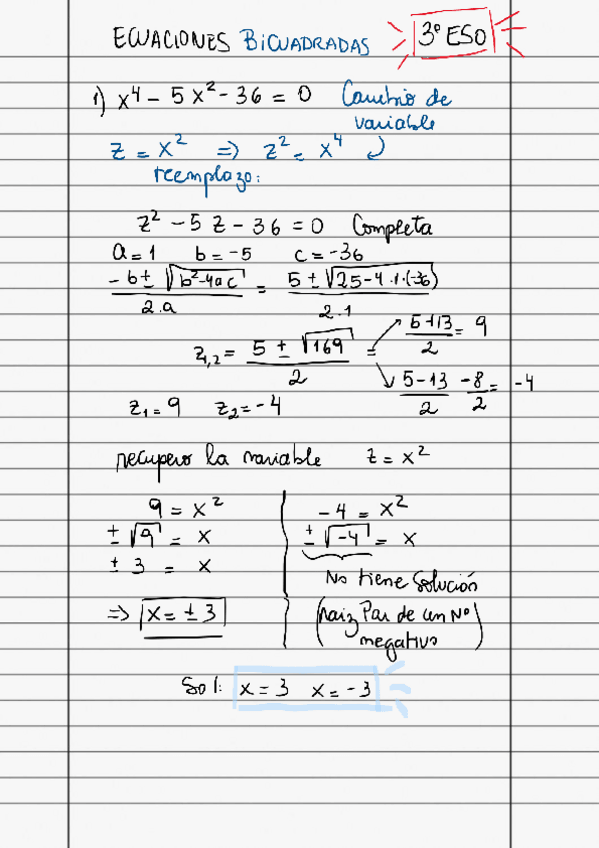 ECUACIONES BICUADRADAS 3º ESO
1) x⁴ - 5x² - 36 = 0 Cambio de
variable
z = x² => z² = x⁴
reemplazo:
z² - 5z - 36 = 0 Completa
a = 1 b = -5 c = -36
(-b ± √(b²-4ac)) / 2.a = (5 ± √(25-4.1.(-36))) / 2.1
z₁,₂ = (5 ± √169) / 2 = (5+13)/2 = 9
(5-13)/2 -8/2 = -4
z₁ = 9 z₂ = -4
recupero la variable z = x²
9 = x² -4 = x²
± √9 = x ± √-4 = x
± 3 = x No tiene solución
=> x = ± 3 (raiz Par de un Nº
negativo)
Sol: x = 3 x = -3